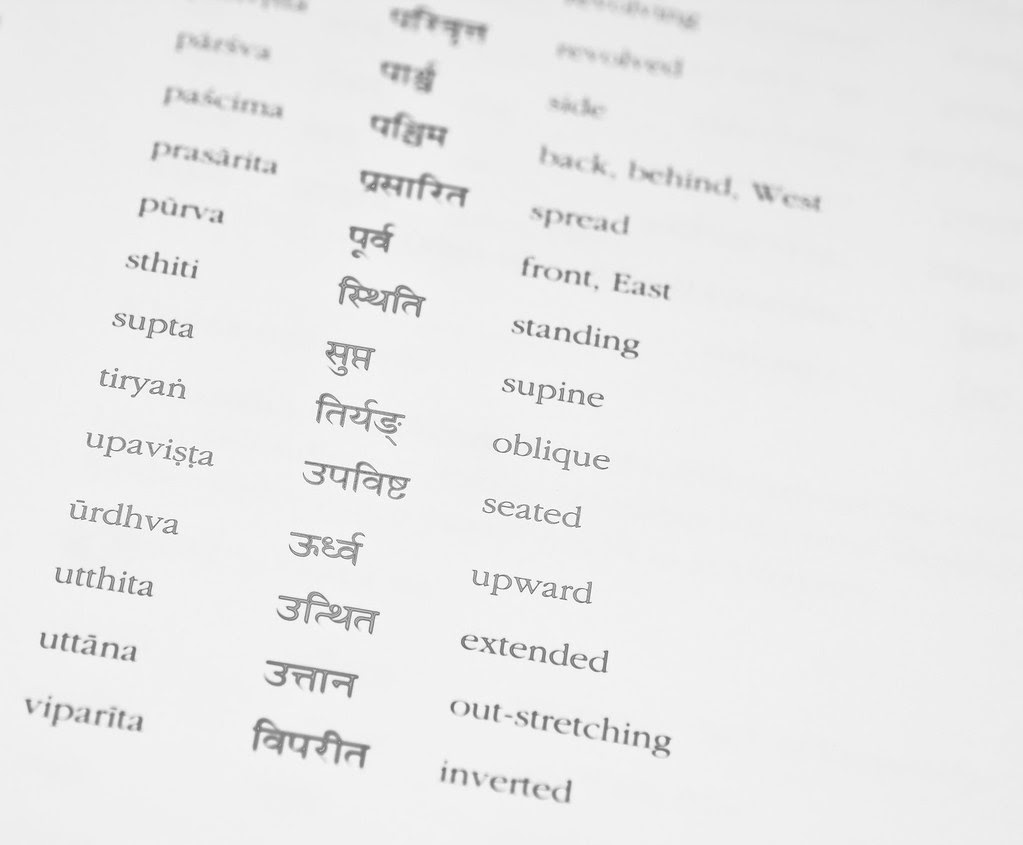 परिवृत्त revolved
pārśva पार्श्व side
paścima पश्चिम back, behind, West
prasārita प्रसारित spread
pūrva पूर्व front, East
sthiti स्थिति standing
supta सुप्त supine
tiryaṅ तिर्यङ् oblique
upaviṣṭa उपविष्ट seated
ūrdhva ऊर्ध्व upward
utthita उत्थित extended
uttāna उत्तान out-stretching
viparīta विपरीत inverted